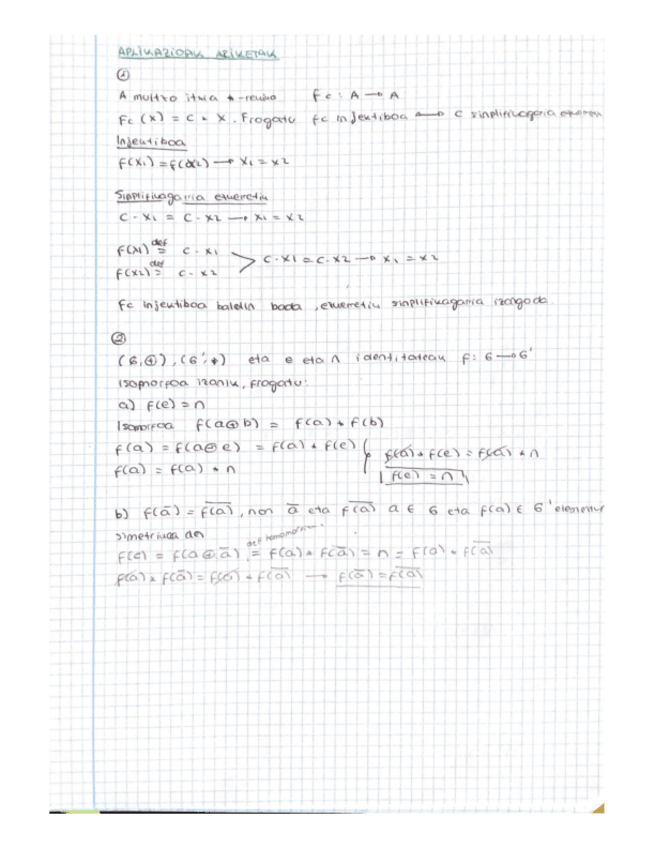 APLIKAZIOAK ARIKETAK
①
A multzo itxia *-rekiko fc : A → A
Fc (x) = c * x . Frogatu fc injektiboa ↔ c sinplifikagarria ezkerretik
Injektiboa
f(x1) = f(x2) → x1 = x2
Sinplifikagarria ezkerretik
c * x1 = c * x2 → x1 = x2
f(x1) def= c * x1
f(x2) def= c * x2 > c * x1 = c * x2 → x1 = x2
Fc injektiboa baldin bada, ezkerretik sinplifikagarria izango da.
②
(G,⊕), (G',*) eta e eta n identitateak f: G → G'
isomorfoa izanik, frogatu:
a) f(e) = n
Isomorfoa f(a⊕b) = f(a) * f(b)
f(a) = f(a⊕e) = f(a) * f(e)
f(a) = f(a) * n } f(a) * f(e) = f(a) * n
f(e) = n
b) f(ā) = \overline{f(a)}, non ā eta \overline{f(a)} a ∈ G eta f(a) ∈ G' elementu
simetrikoa den
def homomorfismo
f(e) = f(a⊕ā) = f(a) * f(ā) = n = f(a) * \overline{f(a)}
f(a) * f(ā) = f(a) * \overline{f(a)} → f(ā) = \overline{f(a)}